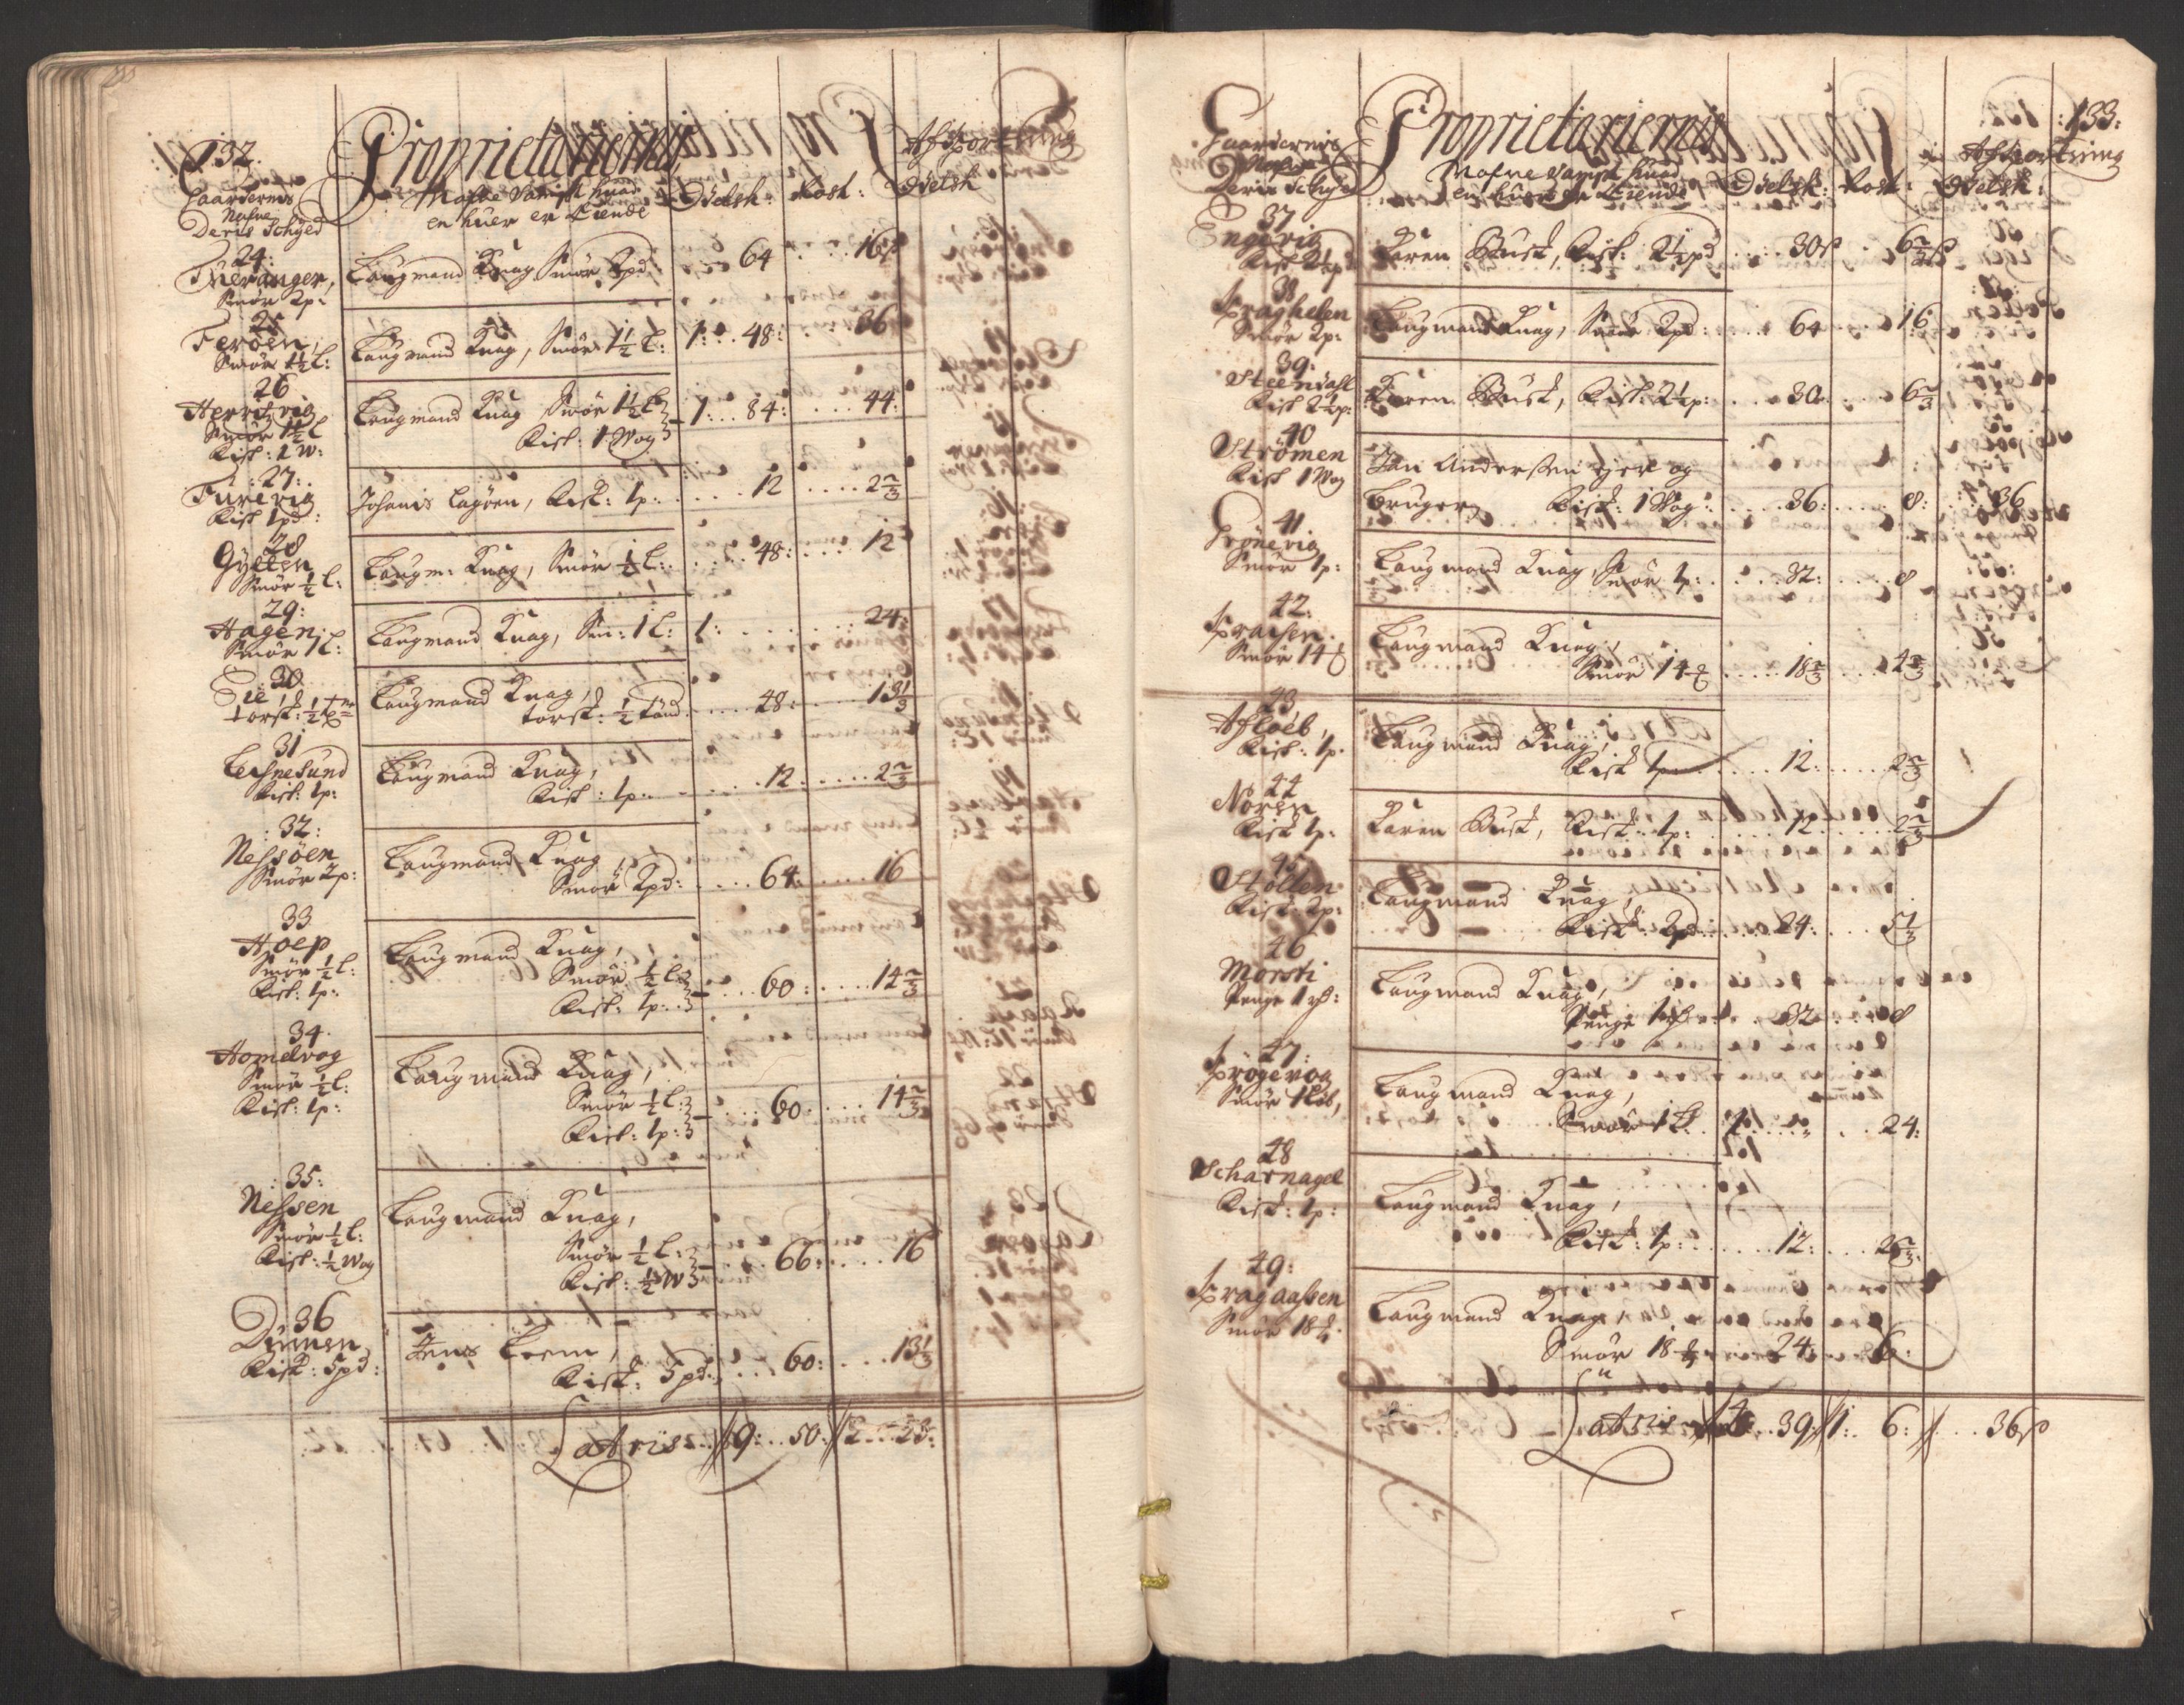 132.
Gaardernis
Nafne
Deris Schyld
Proprietariernis
Nafne Sampt huad
en huer er Eiende
Odelsk:
Bost:
Afkortning
Odelsk
24:
Tveranger,
Smör 2p:
Laugmand Knag Smör 2pd:
64
16ß
25
Feröen,
Smör 1½ L:
Laugmand Knag, Smör 1½ L:
1: . . 48:
36
26
Herritzvig
Smör 1½ L
Fisk: 1 W:
Laugmand Knag Smör 1½ L
Fisk: 1 Wog
1: . . 84:
44:
27:
Turevig
Fisk 1pd:
Johanis Lagöen, Fisk: 1p:
12
2⅔
28
Gylten
Smör ½ L:
Laugm: Knag, Smör ½ L:
48:
12
29:
Hagen:
Smör 1 L:
Laugmand Knag, Sm: 1 L:
1:
24:
30
Eie
torsk: ½ t
Laugmand Knag,
torsk: ½ tönd
48:
13⅓
31
Leisnesund
Fisk: 1p:
Laugmand Knag,
Fisk: 1p:
12
2⅔
: 32:
Nessöen
Smör 2p:
Laugmand Knag,
Smör 2pd:
64:
16
33
Hoep
Smör ½ L:
Fisk: 1p:
Laugmand Knag,
Smör ½ L:
Fisk: 1p:
60:
14⅔
34.
Homelvog
Smör ½ L:
Fisk: 1p:
Laugmand Knag,
Smör ½ L:
Fisk: 1p:
60
14⅔
: 35:
Nessen
Smör ½ L:
Fisk: ½ Wog
Laugmand Knag,
Smör ½ L:
Fisk: ½ W
66:
16
36
Dirmen
Fisk: 5pd:
Jens Leem,
Fisk: 5pd:
60:
13⅓
Latris
9: . . 50:
2 . . 28:
133:
Gaardernis
Nafne
Deris Schyld
Proprietariernis
Nafne Sampt huad
en huer er Eiende
Odelsk:
Bost:
Afkortning
Odelsk:
37
Engevig
Fisk 2½pd
Karen Busk, Fisk: 2½pd
30ß
6⅔ß
38
Kraghelen
Smör 2p:
Laugmand Knag, Smör 2pd:
64
16
39:
Steendahl
Fisk 2½p:
Karen Busk, Fisk: 2½p:
30
6⅔
40
Strömen
Fisk 1 Wog
Jan Anderssen ejer og
bruger Fisk: 1 Wog:
36:
8:
36
41
Grönevig
Smör 1p:
Laugmand Knag, Smör 1p:
32:
8
42:
Kraisen
Smör 14
Laugmand Knag,
Smör 14
18⅔
4⅔
43
Afloeb,
Fisk: 1p.
Laugmand Knag,
Fisk 1p
12:
2⅔
44
Nören
Fisk 1p:
Karen Busk, Fisk: 1p:
12
2⅔
45
Stöllen
Fisk: 2p:
Laugmand Knag,
Fisk: 2pd:
24:
5⅓
46
Morsti
Penge
Laugmand Knag,
Penge
32
8
47:
Krögevog
Smör 1 Löb,
Laugmand Knag,
Smör 1 L
1
24:
48
Scharnagel
Fisk: 1p:
Laugmand Knag,
Fisk: 1p:
12:
2⅔:
49:
Kragaassen
Smör 18
Laugmand Knag,
Smör 18
24:
6:
Latris
39
1: . 6:
36ß